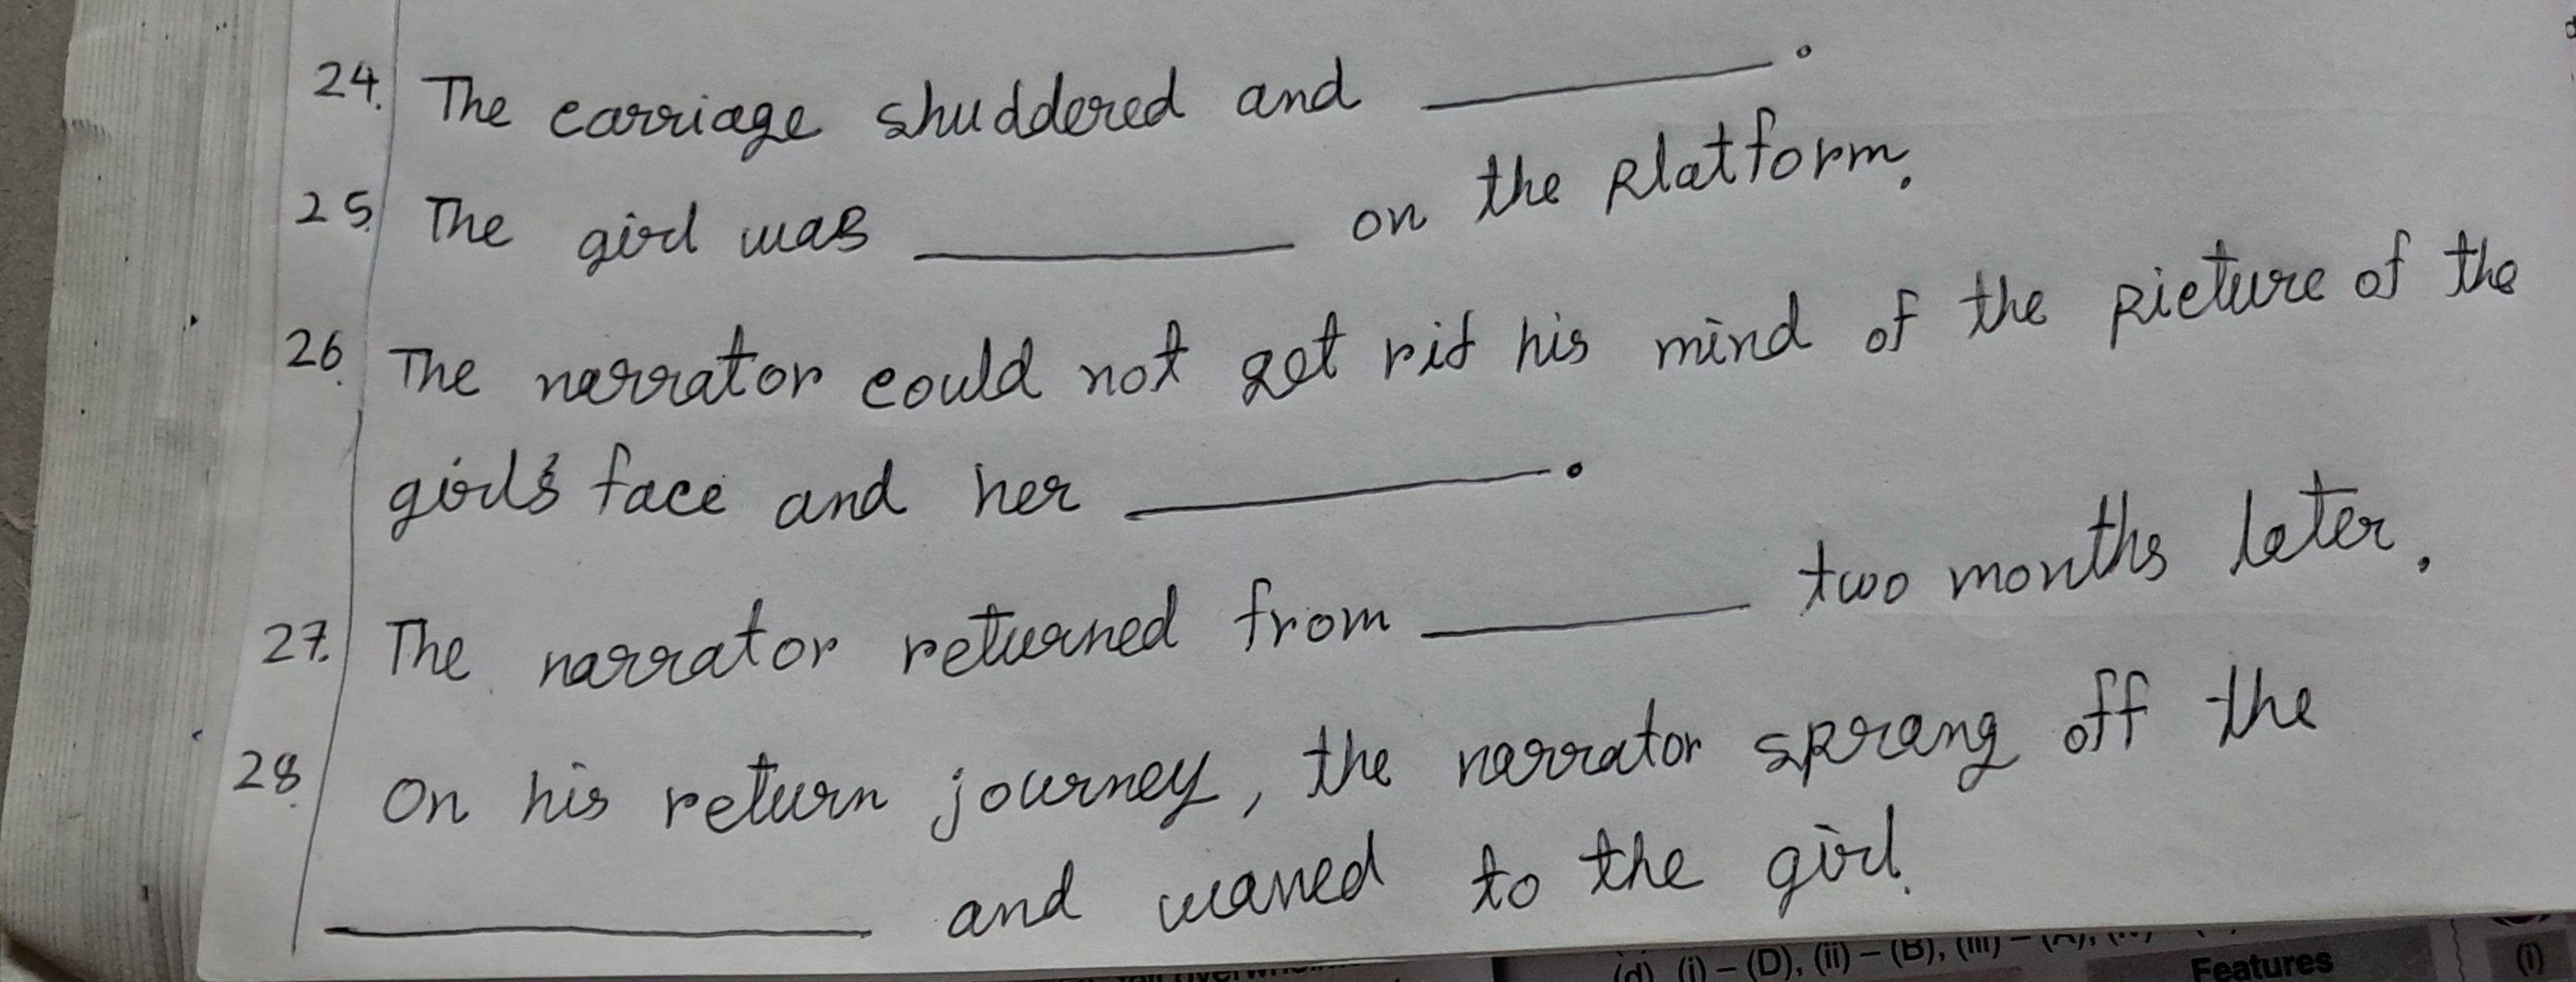 24. The carriage shuddered and ________.
25. The girl was ________ on the platform.
26. The narrator could not get rid his mind of the picture of the
girl's face and her ________.
27. The narrator returned from ________ two months later.
28. On his return journey, the narrator sprang off the
________ and waved to the girl.
(d) (i) – (D), (ii) – (B), (iii) – (A),
Features
(i)